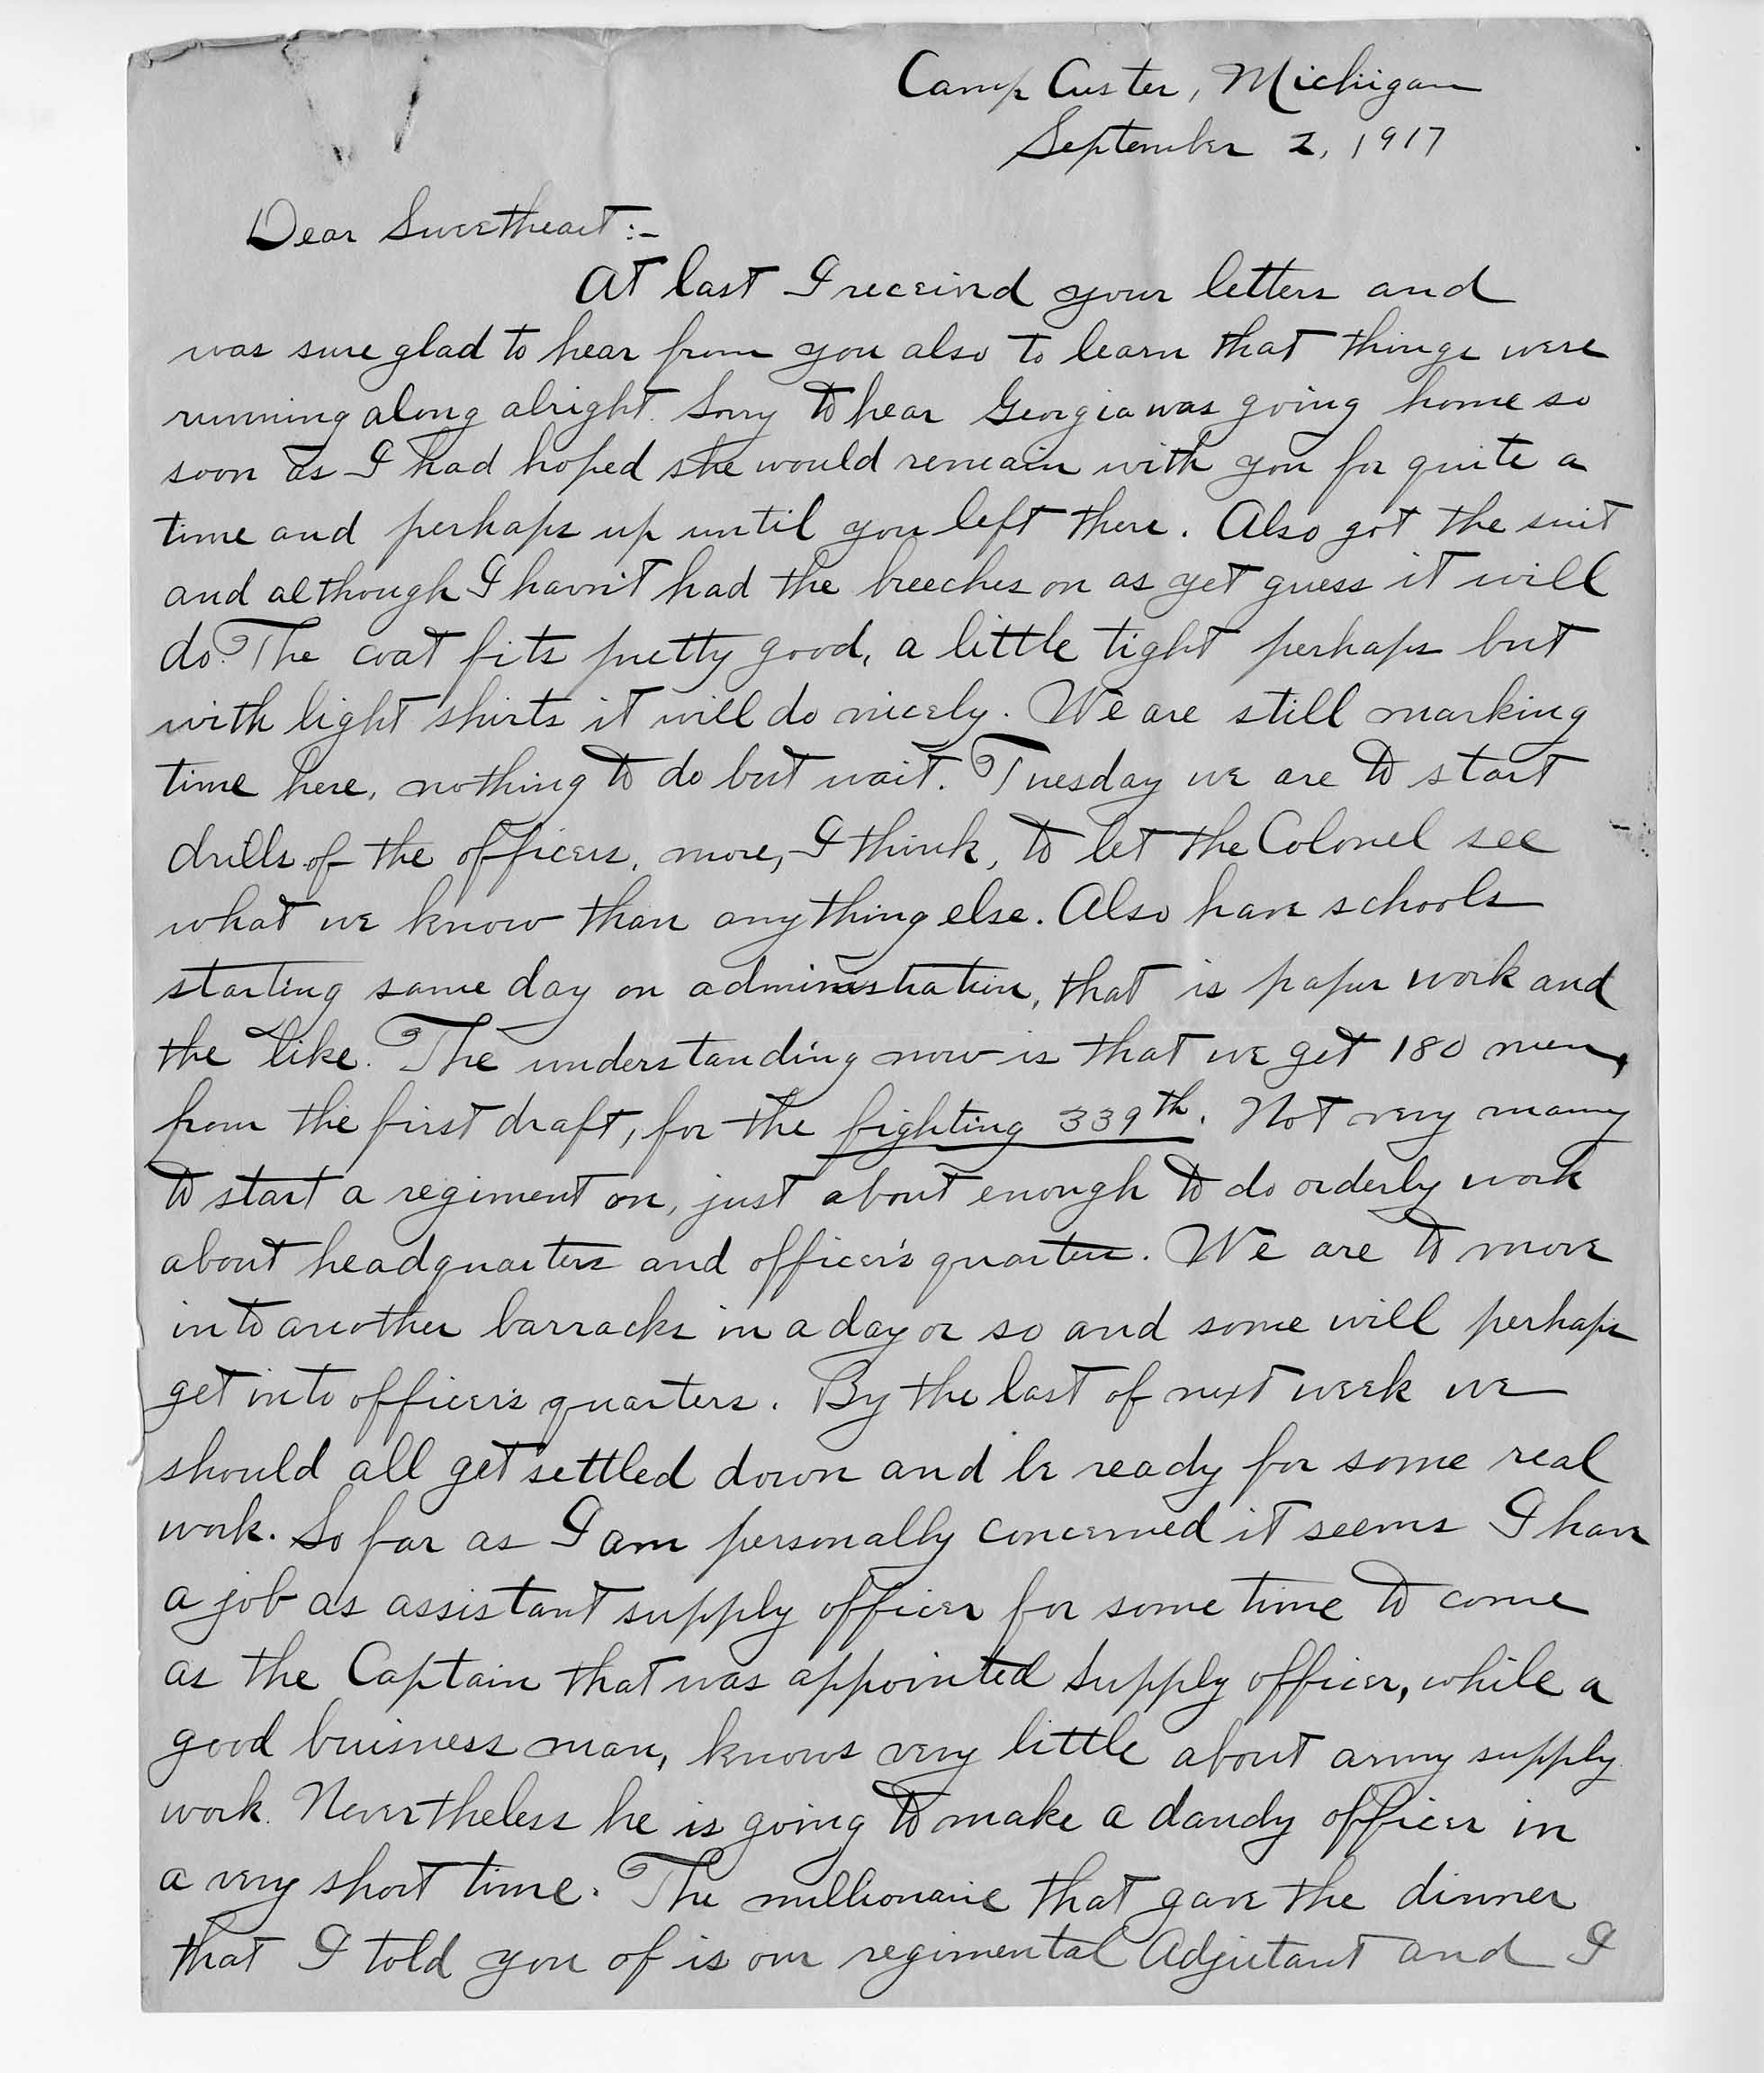 Camp Custer, Michigan
September 2, 1917
Dear Sweetheart:-
At last I received your letters and
was sure glad to hear from you also to learn that things were
running along alright. Sorry to hear Georgia was going home so
soon as I had hoped she would remain with you for quite a
time and perhaps up until you left there. Also got the suit
and although I havn't had the breeches on as yet guess it will
do. The coat fits pretty good, a little tight perhaps but
with light shirts it will do nicely. We are still marking
time here, nothing to do but wait. Tuesday we are to start
drills of the officers, more, I think, to let the Colonel see
what we know than anything else. Also have schools
starting same day on administration, that is paper work and
the like. The understanding now is that we get 180 men,
from the first draft, for the fighting 339th. Not very many
to start a regiment on, just about enough to do orderly work
about headquarters and officer's quarters. We are to move
into another barracks in a day or so and some will perhaps
get into officer's quarters. By the last of next week we
should all get settled down and be ready for some real
work. So far as I am personally concerned it seems I have
a job as assistant supply officer for some time to come
as the Captain that was appointed supply officer, while a
good buisness man, knows very little about army supply
work. Nevertheless he is going to make a dandy officer in
a very short time. The millionaire that gave the dinner
that I told you of is our regimental Adjutant and I